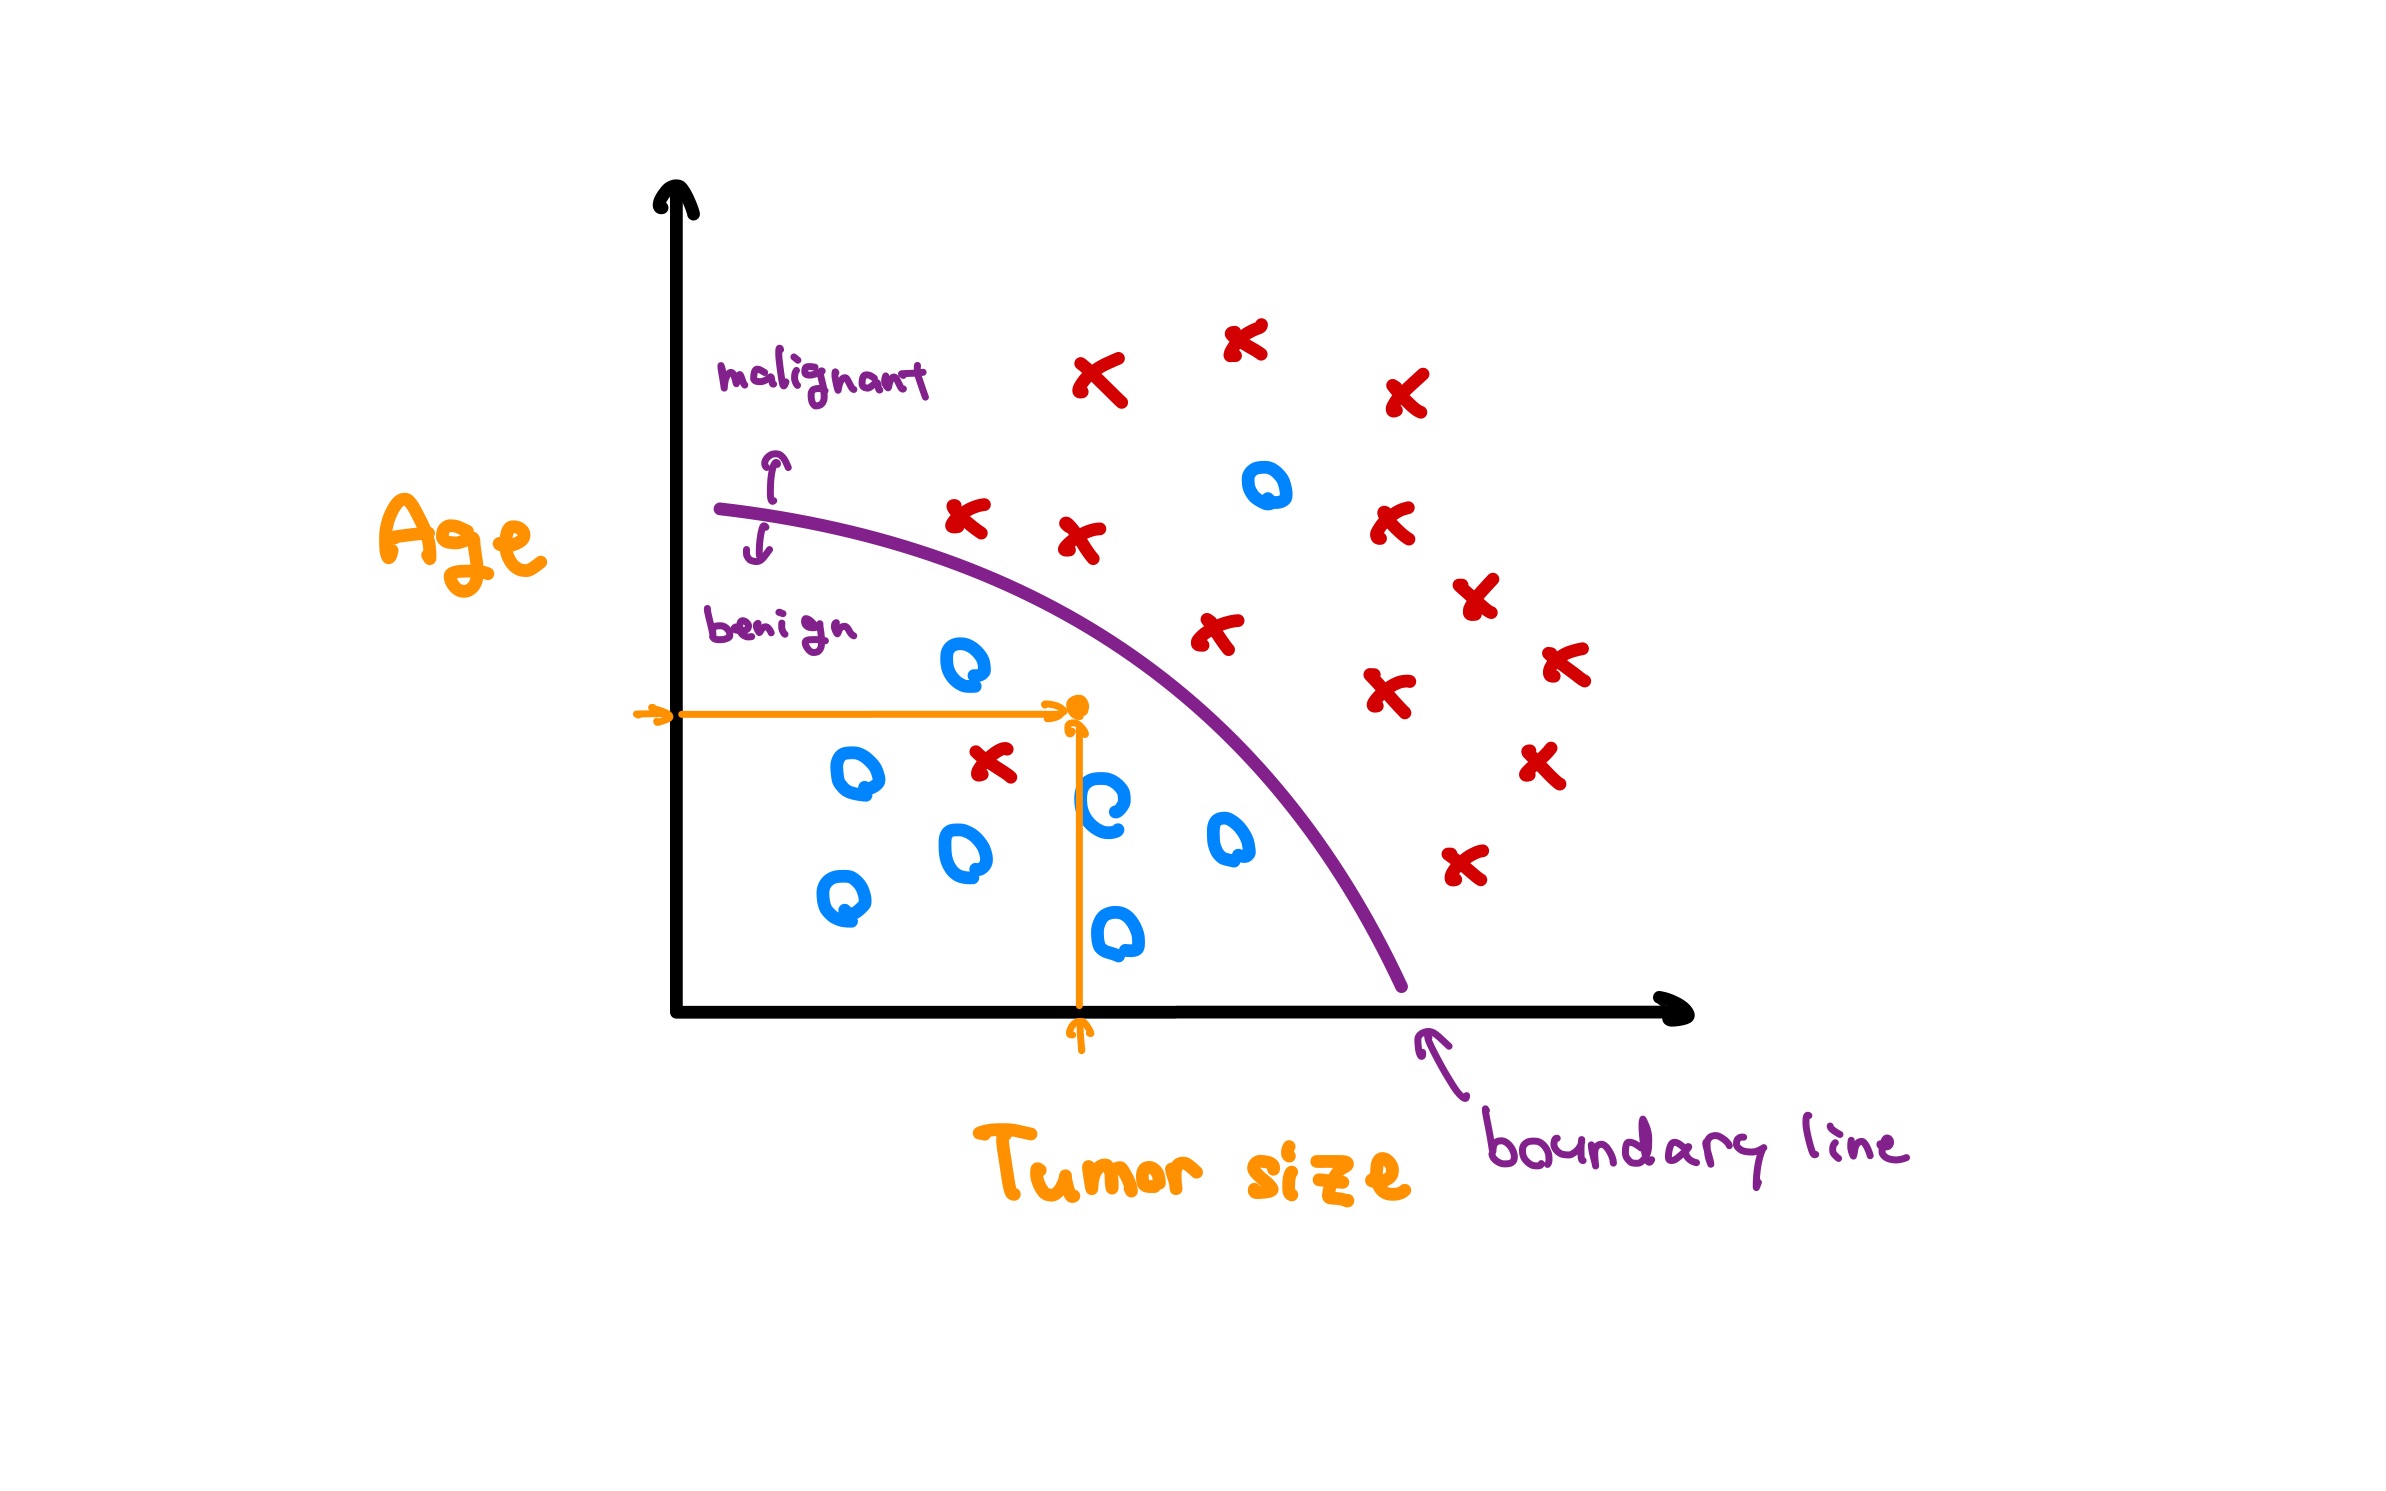 malignant
Age
benign
Tumor size
boundary line